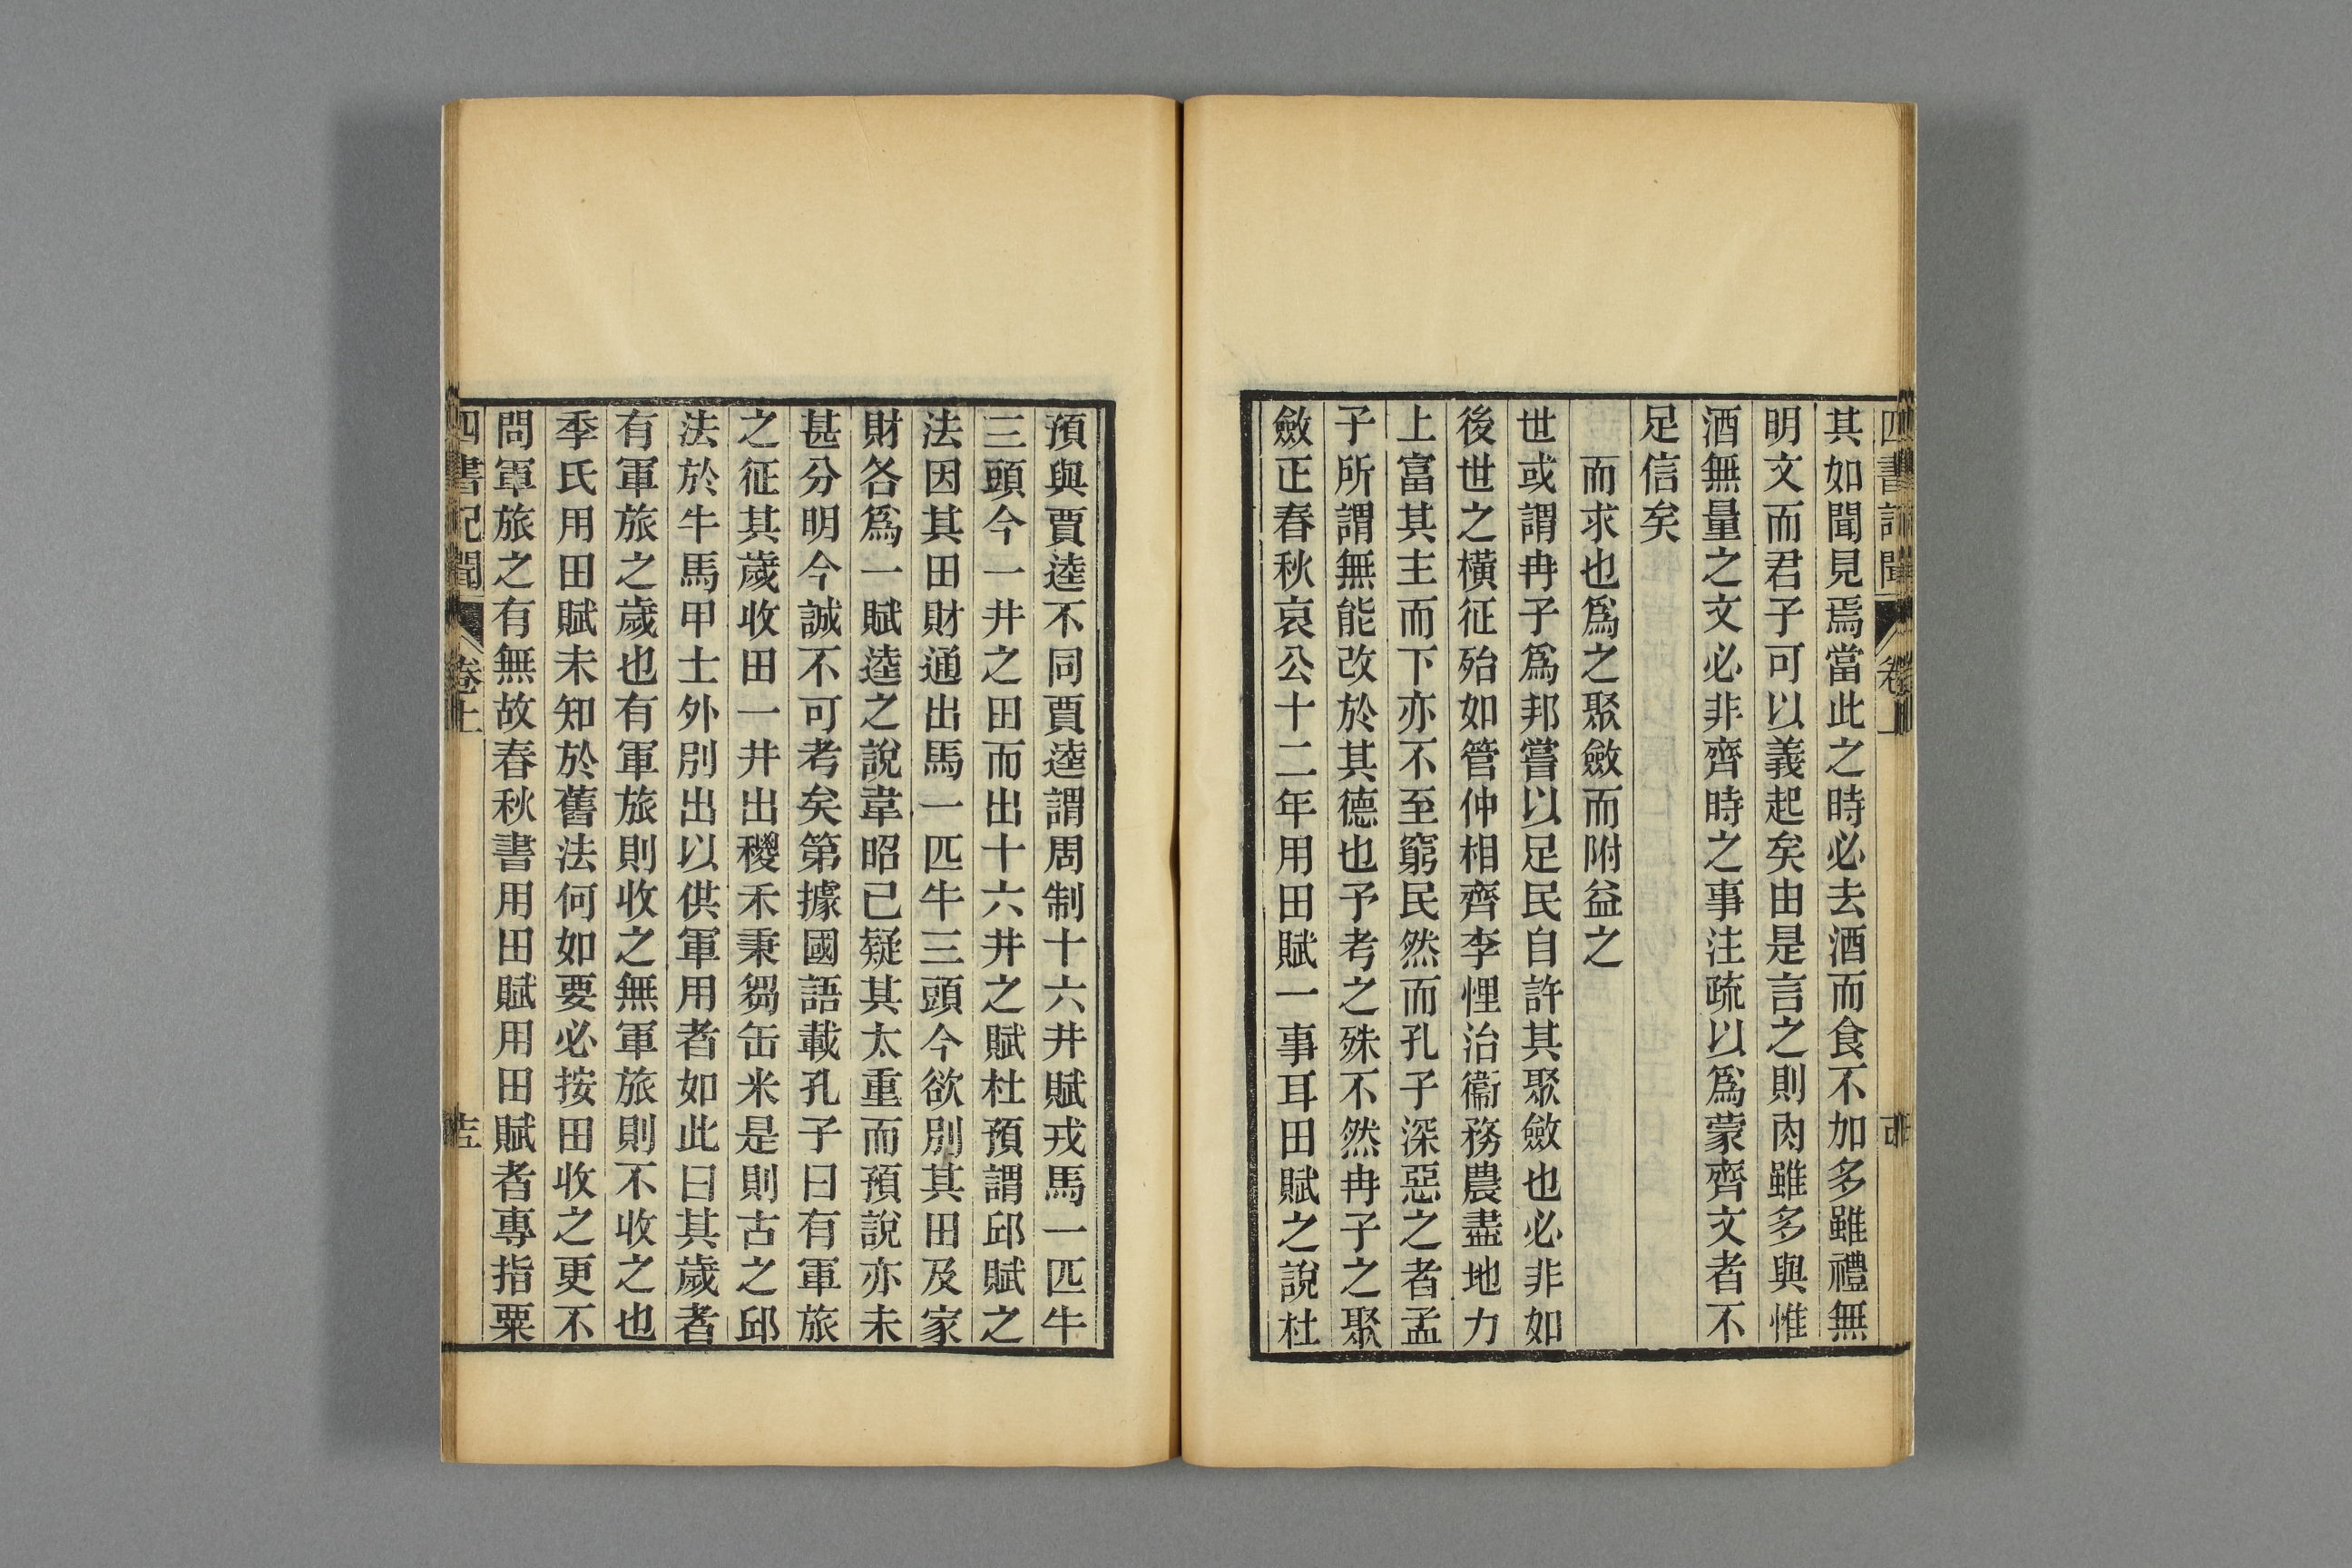 四書記聞 卷上 十四
其如聞見焉當此之時必去酒而食不加多雖禮無
明文而君子可以義起矣由是言之則肉雖多與惟
酒無量之文必非齊時之事注疏以爲蒙齊文者不
足信矣
而求也爲之聚斂而附益之
世或謂冉子爲邦嘗以足民自許其聚斂也必非如
後世之橫征殆如管仲相齊李悝治衞務農盡地力
上富其主而下亦不至窮民然而孔子深惡之者孟
子所謂無能改於其德也予考之殊不然冉子之聚
斂正春秋哀公十二年用田賦一事耳田賦之說杜
預與賈逵不同賈逵謂周制十六井賦戎馬一匹牛
三頭今一井之田而出十六井之賦杜預謂邱賦之
法因其田財通出馬一匹牛三頭今欲別其田及家
財各爲一賦逵之說韋昭已疑其太重而預說亦未
甚分明今誠不可考矣第據國語載孔子曰有軍旅
之征其歲收田一井出稷禾秉芻缶米是則古之邱
法於牛馬甲士外別出以供軍用者如此曰其歲者
有軍旅之歲也有軍旅則收之無軍旅則不收之也
季氏用田賦未知於舊法何如要必按田收之更不
問軍旅之有無故春秋書用田賦用田賦者專指粟
四書記聞 卷上